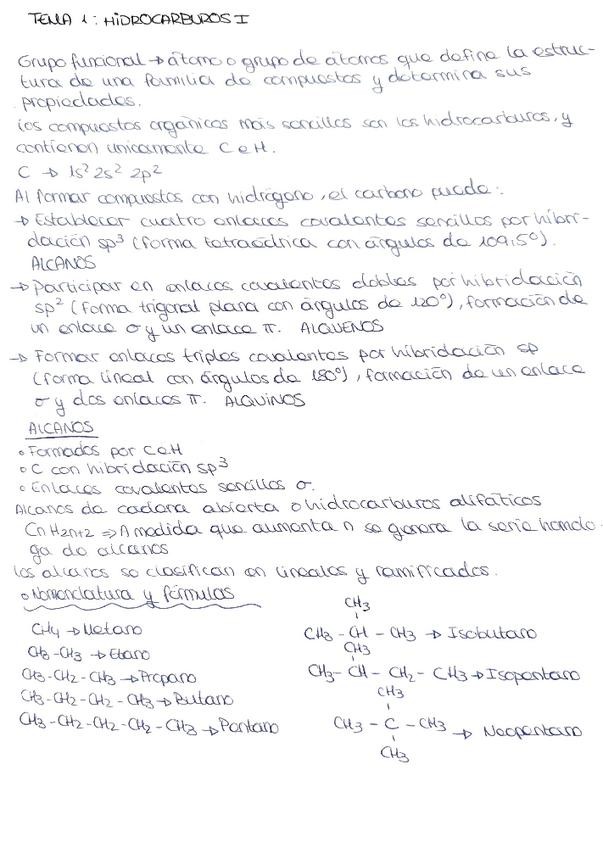 TEMA 1: HIDROCARBUROS I
Grupo funcional → átomo o grupo de átomos que define la estruc-
tura de una familia de compuestos y determina sus
propiedades.
Los compuestos orgánicos más sencillos son los hidrocarburos, y
contienen únicamente C e H.
C → 1s² 2s² 2p²
Al formar compuestos con hidrógeno, el carbono puede:
→ Establecer cuatro enlaces covalentes sencillos por hibri-
dación sp³ (forma tetraédrica con ángulos de 109,5º).
ALCANOS
→ Participar en enlaces covalentes dobles por hibridación
sp² (forma trigonal plana con ángulos de 120º), formación de
un enlace σ y un enlace π. ALQUENOS
→ Formar enlaces triples covalentes por hibridación sp
(forma lineal con ángulos de 180º), formación de un enlace
σ y dos enlaces π. ALQUINOS
ALCANOS
• Formados por C e H
• C con hibridación sp³
• Enlaces covalentes sencillos σ.
Alcanos de cadena abierta o hidrocarburos alifáticos
CnH2n+2 ⇒ A medida que aumenta n se genera la serie homólo-
ga de alcanos
Los alcanos se clasifican en lineales y ramificados.
• Nomenclatura y fórmulas
CH4 → Metano
CH3-CH3 → Etano
CH3-CH2-CH3 → Propano
CH3-CH2-CH2-CH3 → Butano
CH3-CH2-CH2-CH2-CH3 → Pentano
CH3
CH3 - CH - CH3 → Isobutano
CH3
CH3 - CH - CH2 - CH3 → Isopentano
CH3
CH3 - C - CH3 → Neopentano
CH3